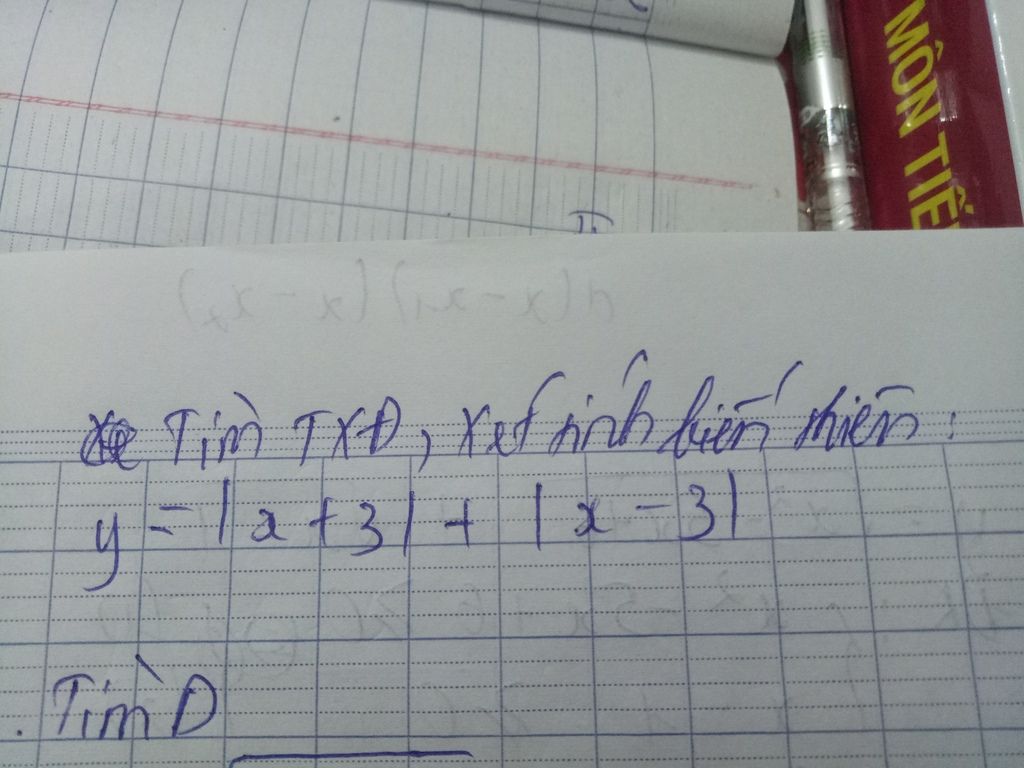 MÔN TIẾ
Tìm TXĐ, xét tính biến thiên:
y = |x + 3| + |x - 3|
. Tìm D